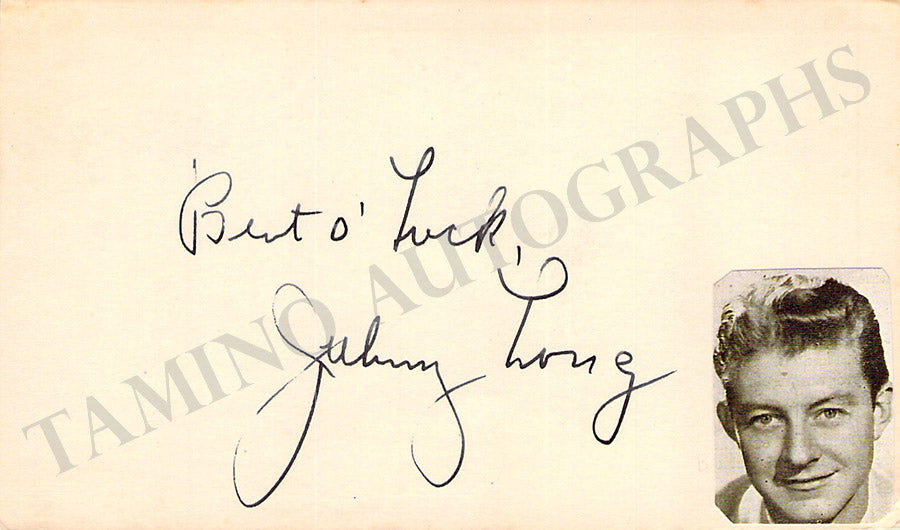 Best o' Luck,
Johnny Long
TAMINO AUTOGRAPHS